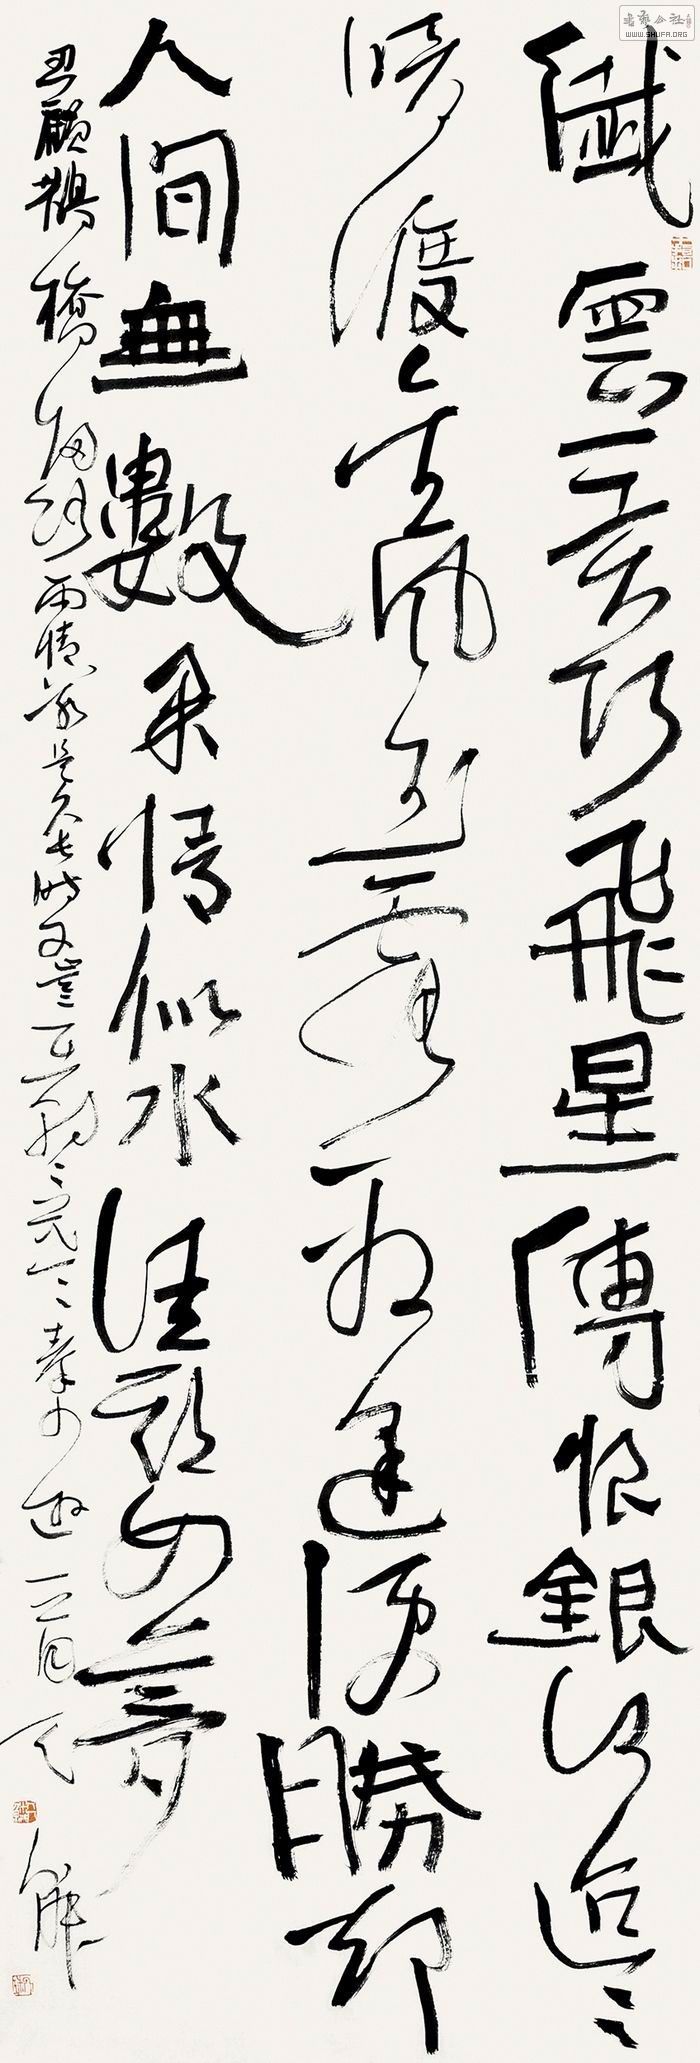 書法公社
WWW.SHUFA.ORG
纖雲弄巧飛星傳恨銀漢迢〻
暗渡金風玉露一相逢便勝却
人間無數柔情似水佳期如夢
忍顧鵲橋歸路兩情若是久長時又豈在朝〻暮〻秦少遊